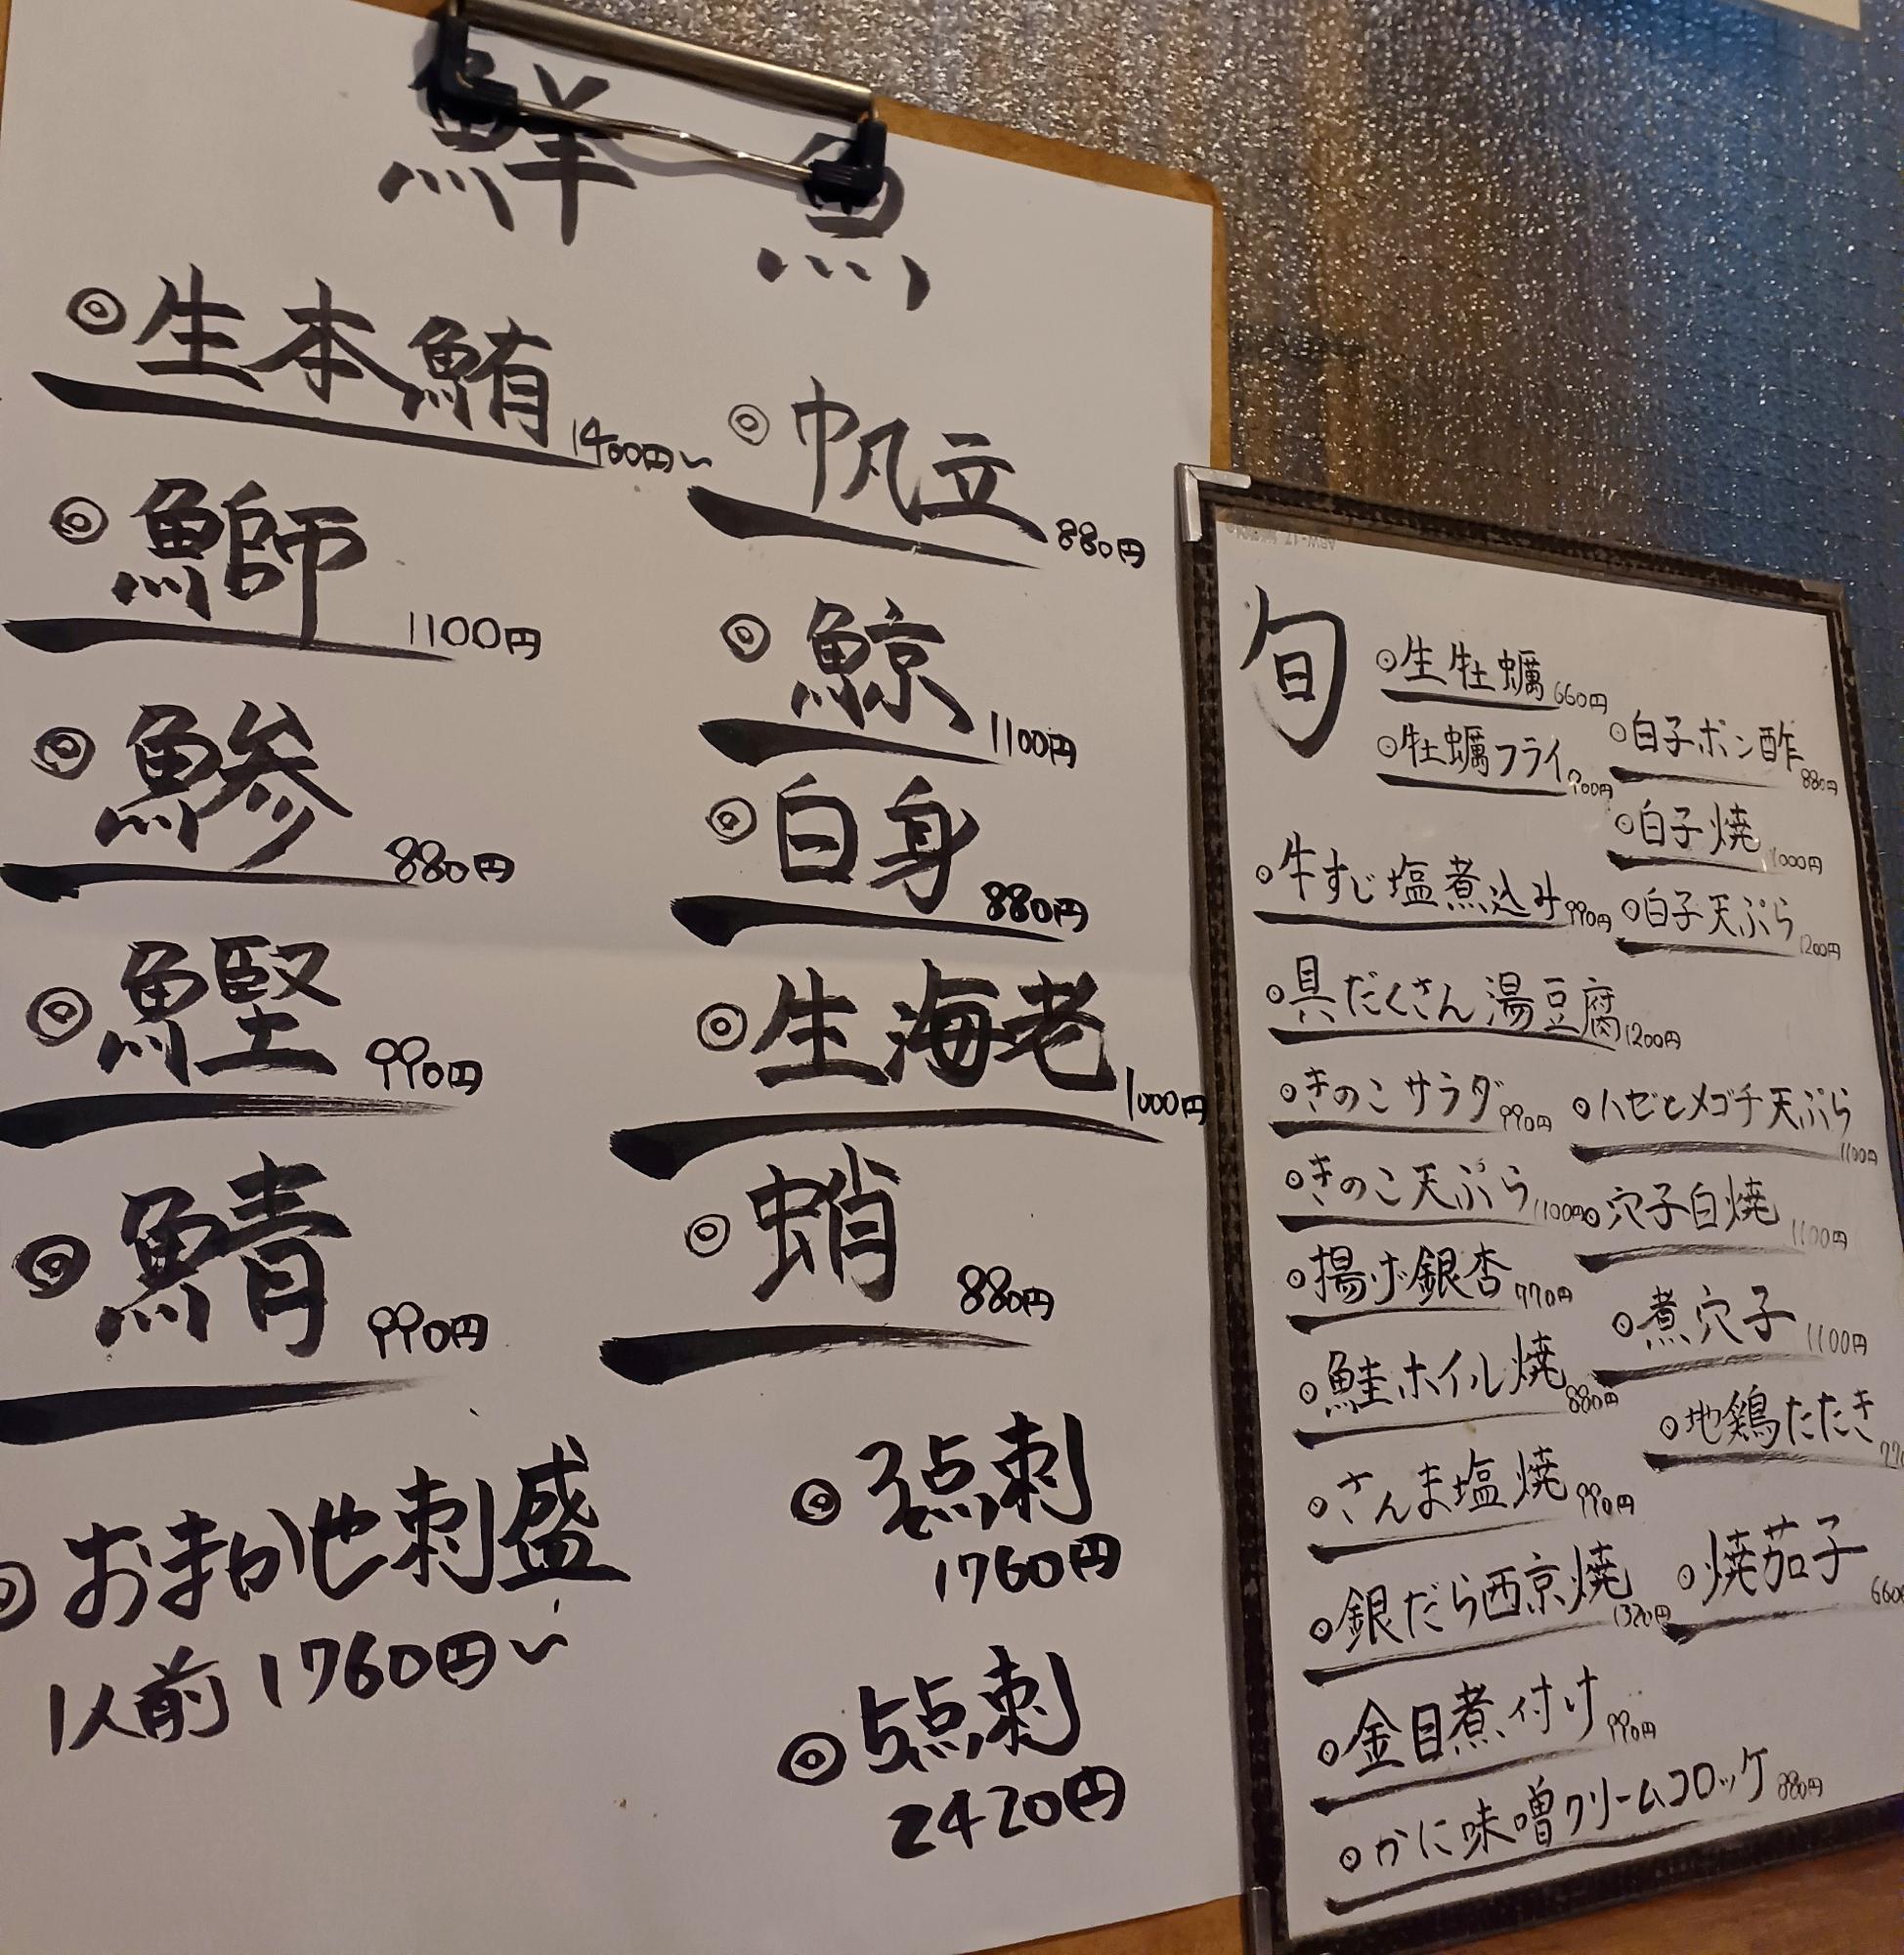 鮮魚
◎生本鮪 1400円〜
◎鰤 1100円
◎鯵 880円
◎鰹 990円
◎鯖 990円
◎おまかせ刺盛
1人前 1760円〜
◎帆立 880円
◎鯨 1100円
◎白身 880円
◎生海老 1000円
◎蛸 880円
◎3点刺
1760円
◎5点刺
2420円
旬
◎生牡蠣 660円
◎牡蠣フライ 900円
◎牛すじ塩煮込み 990円
◎具だくさん湯豆腐 1200円
◎きのこサラダ 990円
◎きのこ天ぷら 1100円
◎揚げ銀杏 770円
◎鮭ホイル焼 880円
◎さんま塩焼 990円
◎銀だら西京焼 1320円
◎金目煮付け 990円
◎かに味噌クリームコロッケ 880円
◎白子ポン酢 880円
◎白子焼 1000円
◎白子天ぷら 1200円
◎ハゼとメゴチ天ぷら 1100円
◎穴子白焼 1100円
◎煮穴子 1100円
◎地鶏たたき
◎焼茄子 660